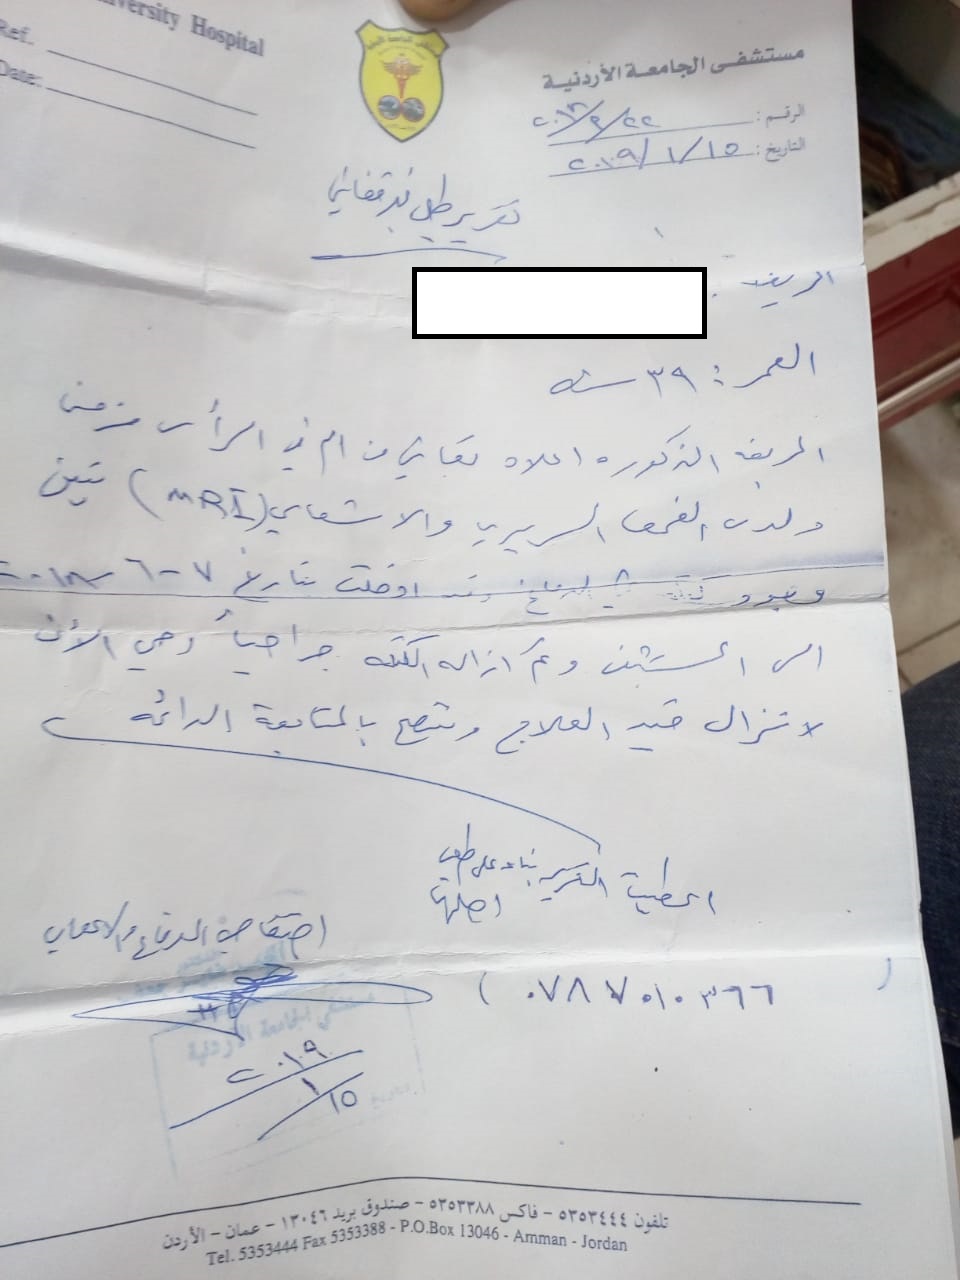 University Hospital
Ref.
Date:
مستشفى الجامعة الأردنية
الرقم :
التاريخ : ٢٠١٩/١/١٥
تقرير طبي
المريضه :
العمر : ٣٩ سنه
المريضه المذكوره اعلاه تعاني من الم في الرأس مزمن
ولدى الفحص السريري والاشعاعي (MRI) تبين
وجود كتله في الدماغ وقد ادخلت بتاريخ ٧-٦-٢٠١٨
الى المستشفى وتم ازاله الكتله جراحياً وهي الآن
لا تزال قيد العلاج وتنصح بالمتابعة الدائمه
اعطيت التقرير بناء على طلب
اهلها
اختصاصي الدماغ والاعصاب
( ٠٧٨٧٠١٠٣٦٦ )
مستشفى الجامعة الأردنية
٢٠١٩
١/١٥
تلفون ٥٣٥٣٤٤٤ – فاكس ٥٣٥٣٣٨٨ – صندوق بريد ١٣٠٤٦ – عمان – الأردن
Tel. 5353444 Fax 5353388 - P.O.Box 13046 - Amman - Jordan